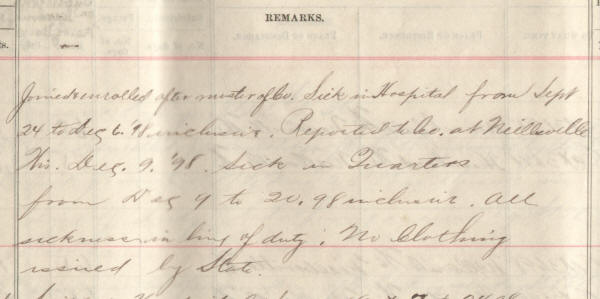 REMARKS.
Joined & enrolled after muster of Co. Sick in Hospital from Sept
24 to Dec 6. '98 inclusive. Reported to Co. at Neillsville
Wis. Dec. 9. '98. Sick in Quarters
from Dec 9 to 20. 98 inclusive. All
sickness in line of duty. No Clothing
issued by State.